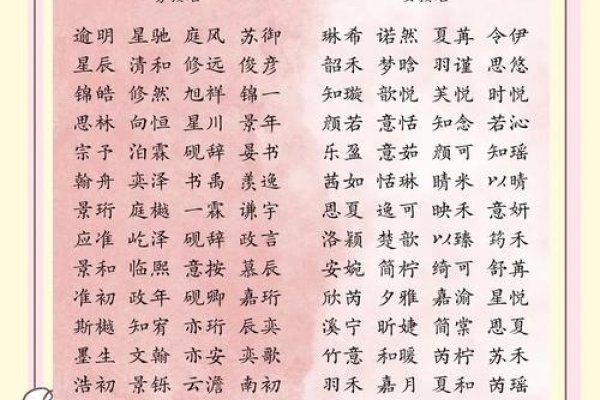 逾明 星驰 庭风 苏御 琳希 诺然 夏苒 令伊
星辰 清和 修远 俊彦 韶禾 梦晗 羽谨 思悠
锦皓 修然 旭祥 锦一 知璇 歆悦 芙悦 时悦
思林 向恒 星川 景年 颜若 意恬 知念 若沁
宗予 泊霖 砚辞 晏书 乐盈 意茹 颜可 知瑶
翰舟 奕泽 书禹 羡逸 茜如 恬琳 晴米 以晴
景珩 庭樾 一霖 谦宇 思夏 逸可 映禾 意妍
应准 屹泽 砚辞 政言 洛颖 楚歆 以臻 筠禾
景和 临熙 意按 慕辰 安婉 简柠 绮可 舒苒
准初 政年 砚卿 嘉珩 欣芮 夕雅 嘉渝 星悦
斯樾 知宥 亦珩 辰奕 溪宁 昕婕 简棠 思夏
墨生 文翰 亦安 奕歌 竹意 和暖 芮柠 苏禾
浩初 景铄 云澹 南初 羽禾 嘉月 夏和 芮瑶